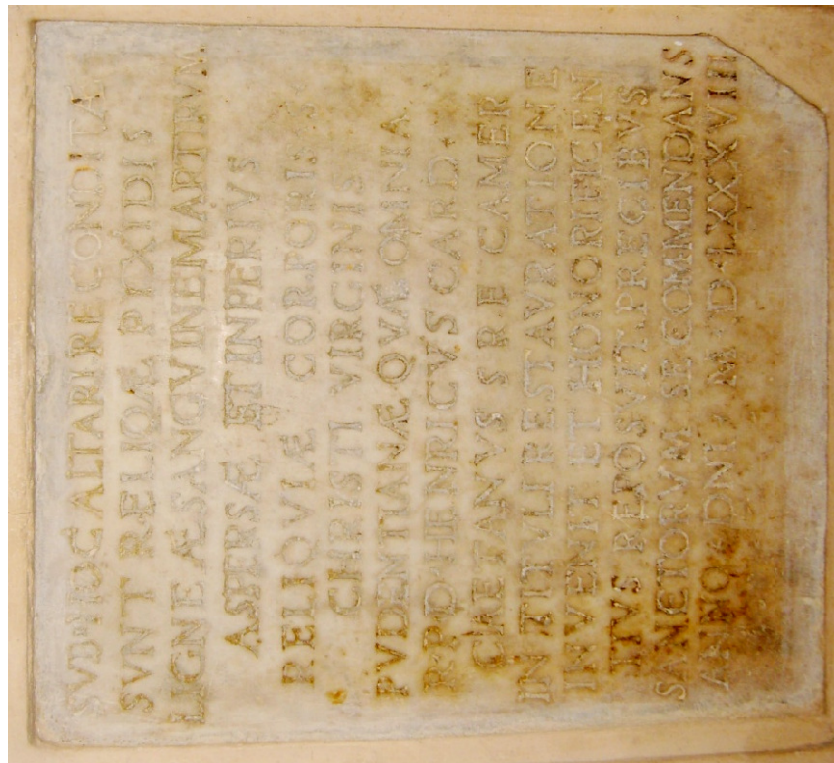 SVB HOC ALTARI RECONDITÆ
SVNT RELIQÆ PIXIDIS
LIGNEÆ SANGVINE MARTIRVM
ASPERSÆ ET INFERIVS
RELIQVIÆ CORPORIBVS
CHRISTI VIRGINIS
PVDENTIANÆ QVÆ OMNIA
R·P·D·HENRICVS CARD·
CAETANVS S R E CAMER
IN TITVLI RESTAVRATIONE
INVENIT ET HONORIFICEN
TIVS REPOSVIT·PRECIBVS
SANCTORVM SE COMMENDANS
ANNO DNI· M·D·LXXXVIII